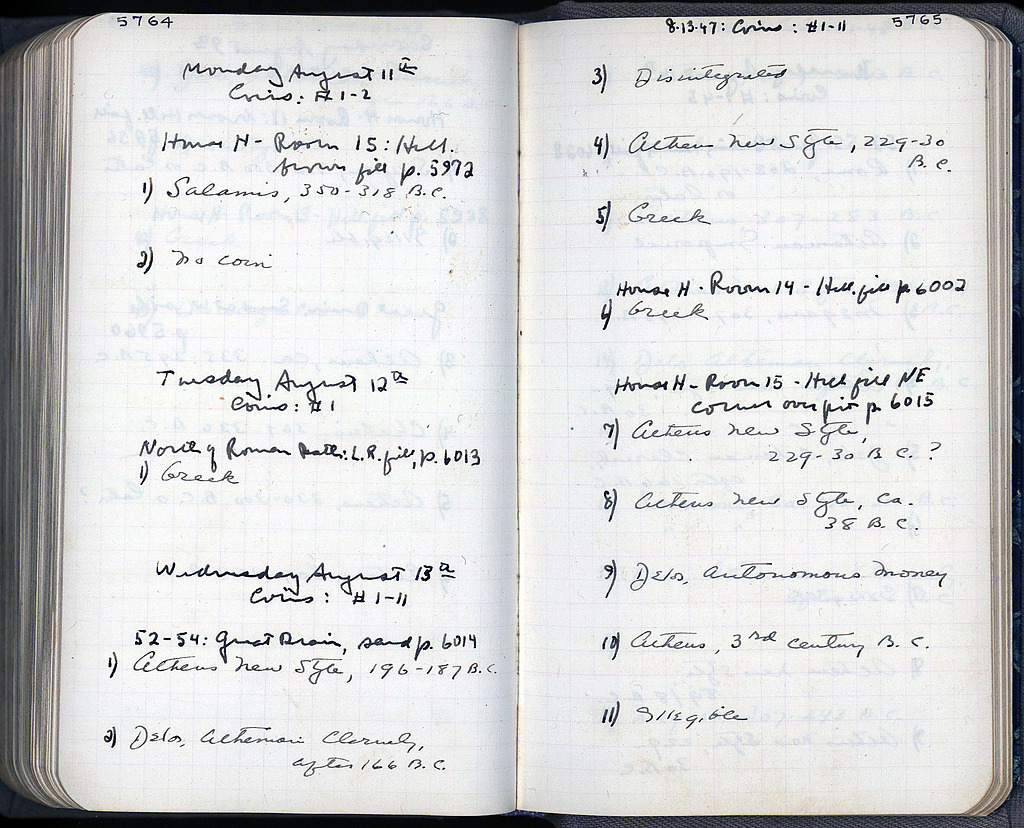 5764
Monday August 11th
Coins: #1-2
House H - Room 15: Hell.
brown fill p. 5972
1) Salamis, 350-318 B.C.
2) No coin
Tuesday August 12th
Coins: #1
North of Roman Bath: L.R. fill, p. 6013
1) Greek
Wednesday August 13th
Coins: #1-11
52-54: Great Drain, sand p. 6014
1) Athens New Style, 196-187 B.C.
2) Delos, Athenian Cleruchy,
after 166 B.C.
8.13.47: Coins: #1-11
5765
3) Disintegrated
4) Athens New Style, 229-30
B.C.
5) Greek
House H - Room 14 - Hell. fill p 6002
6) Greek
House H - Room 15 - Hell fill NE
corner over pit p. 6015
7) Athens New Style,
229-30 B.C. ?
8) Athens New Style, ca.
38 B.C.
9) Delos, Autonomous money
10) Athens, 3rd century B.C.
11) Illegible